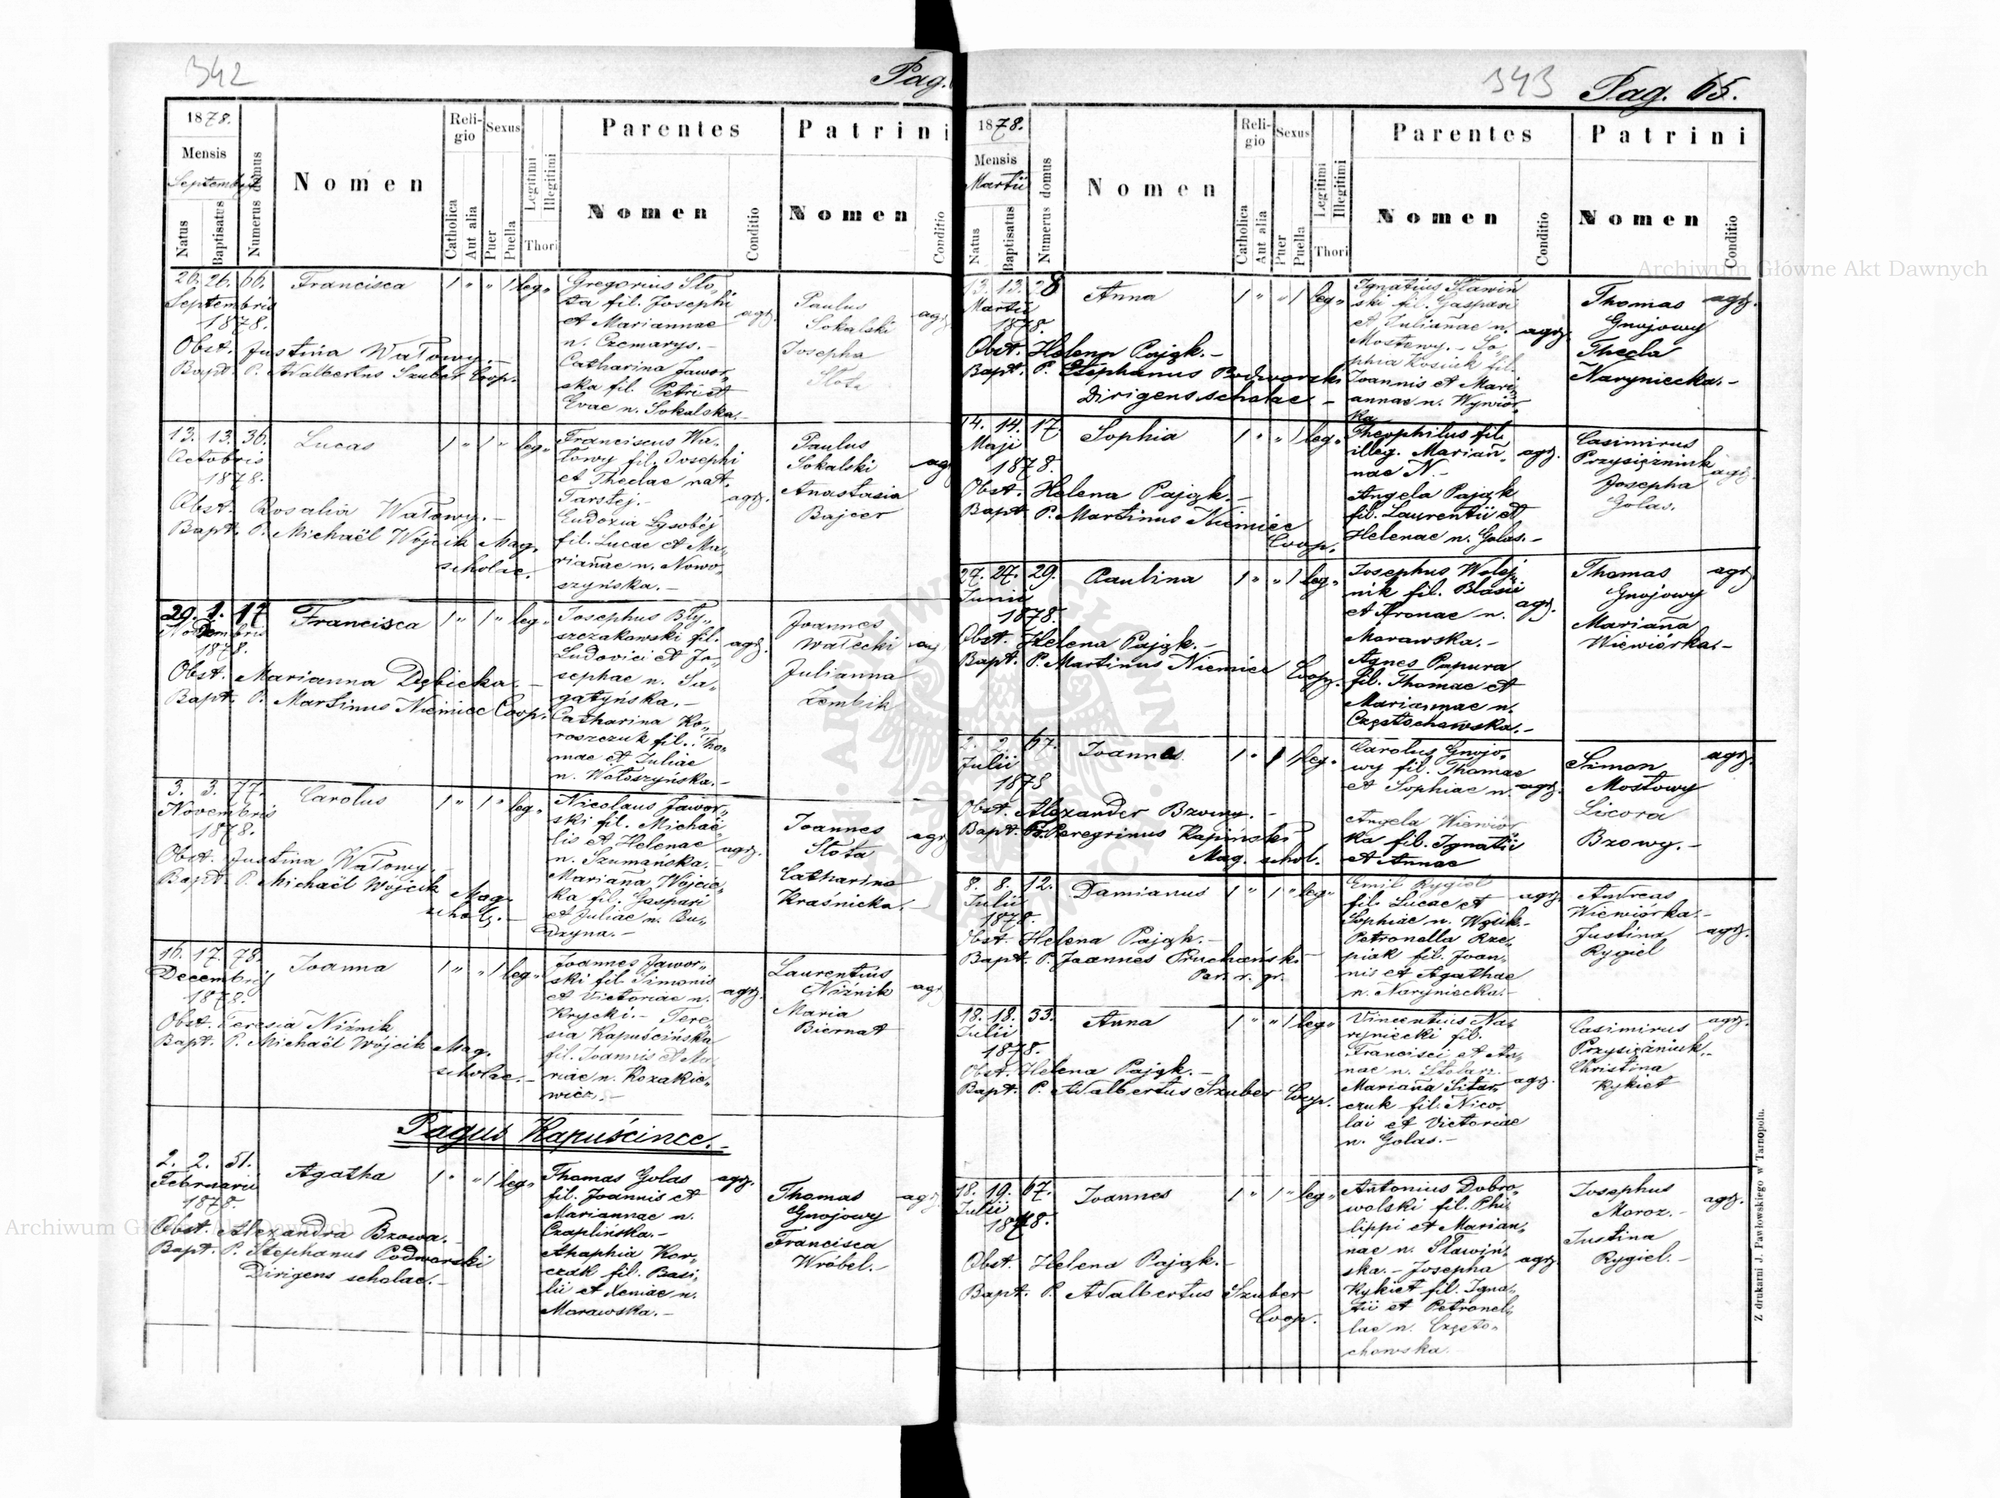 342
Pag.
1878.
Mensis
Septembris
Natus
Baptisatus
Numerus domus
Nomen
Religio
Catholica
Aut alia
Sexus
Puer
Puella
Legitimi
Illegitimi
Thori
Parentes
Nomen
Conditio
Patrini
Nomen
Conditio
26. 26. 66.
Septembris
1878.
Francisca
1 " " 1 leg.
Obst. Justina Watowy.
Bapt. P. Adalbertus Szuber Coop.
Gregorius Sto-
ta fil. Josephi
et Mariannae
n. Czemarys.-
Catharina Jawor-
ska fil. Petri et
Evae n. Sokalska.-
agr.
Paulus
Sokalski
Josepha
Stota
agr.
13. 13. 36.
Octobris
1878.
Lucas
1 " 1 " leg.
Obst. Rosalia Watowy.-
Bapt. P. Michaël Wójcik Mag.
scholae.
Franciscus Wa-
towy fil. Josephi
et Theclae nat.
Tarstej.-
Eudoxia Lysobёj
fil. Lucae et Ma-
riañae n. Nowo-
szyńska.-
agr.
Paulus
Sokalski
Anastasia
Bajcer
agr.
29. 1. 17
Novembris
1878.
Francisca
1 " " 1 leg.
Obst. Marianna Dębicka.-
Bapt. P. Martinus Niemiec Coop.
Josephus Bły-
szczakowski fil.
Ludovici et Jo-
sephae n. Sa-
gatyńska.-
Catharina Ko-
roszczuk fil. Tho-
mae et Juliae
n. Wołoszyńska.-
agr.
Joannes
Watecki
Julianna
Zembik
agr.
3. 3. 77.
Novembris
1878.
Carolus
1 " 1 " leg.
Obst. Justina Watowy.
Bapt. P. Michaël Wójcik Mag.
schol.-
Nicolaus Jawor-
ski fil. Michaë-
lis et Helenae
n. Szumańska.-
Mariaña Wójcic-
ka fil. Gaspari
et Juliae n. Bu-
dzyna.-
agr.
Joannes
Stota
Catharina
Kraśnicka.-
agr.
16. 17. 73.
Decembris
1878.
Joanna
1 " " 1 leg.
Obst. Teresia Niźnik
Bapt. P. Michaël Wójcik Mag.
scholae.-
Joannes Jawor-
ski fil. Simonis
et Victoriae n.
Krycki.- Tere-
sia Kapuścińska
fil. Joannis et Ma-
riae n. Kozakie-
wicz.-
agr.
Laurentius
Niźnik
Maria
Biernat
agr.
Pagus Kapuścince.-
2. 2. 51.
Februarii
1878.
Agatha
1 " " 1 leg.
Obst. Alexandra Bzowa.-
Bapt. P. Stephanus Podworski
Dirigens scholae.-
Thomas Golas
fil. Joannis et
Mariannae n.
Czaplińska.-
Ahaphia Kor-
czak fil. Basi-
lii et Xeniae n.
Morawska.-
agr.
Thomas
Gnojowy
Francisca
Wróbel.-
agr.
343
Pag. 65.
1878.
Mensis
Martii
Natus
Baptisatus
Numerus domus
Nomen
Religio
Catholica
Aut alia
Sexus
Puer
Puella
Legitimi
Illegitimi
Thori
Parentes
Nomen
Conditio
Patrini
Nomen
Conditio
13. 13. 28
Martii
1878.
Anna
1 " " 1 leg.
Obst. Helena Pająk.-
Bapt. P. Stephanus Podworski
Dirigens scholae -
Ignatius Sławiń-
ski fil. Gaspari
et Juliañae n.
Mostowy.- So-
phia Kosiuk fil.
Joannis et Mari-
annae n. Wiewiór-
ka
agr.
Thomas
Gnojowy
Thecla
Naryniecka.-
agr.
14. 14. 17
Maji
1878.
Sophia
1 " " 1 leg.
Obst. Helena Pająk.-
Bapt. P. Martinus Niemiec
Coop.
Theophilus fil.
illeg. Marian-
nae N.-
Angela Pająk
fil. Laurentii et
Helenae n. Golas.-
agr.
Casimirus
Przysiężniuk
Josepha
Golas.
agr.
27. 27. 29.
Junii
1878.
Paulina
1 " " 1 leg.
Obst. Helena Pająk.-
Bapt. P. Martinus Niemiec Coop.
Josephus Wolej-
nik fil. Blasii
et Aronae n.
Morawska.-
Agnes Papura
fil. Thomae et
Mariannae n.
Częstochowska.-
agr.
Thomas
Gnojowy
Mariaña
Wiewiórka.-
agr.
2. 2. 67.
Julii
1878
Joannes
1 " 1 1 leg.
Obst. Alexander Bzowy.-
Bapt. P. Peregrinus Kapiński
Mag. schol.
Carolus Gnojo-
wy fil. Thomae
et Sophiae n.
Angela Wiewiór
ka fil. Ignatii
et Annae
agr.
Simon
Mostowy
Licora
Bzowy.-
agr.
8. 8. 12.
Julii
1878.
Damianus
1 " 1 " leg.
Obst. Helena Pająk.-
Bapt. P. Joannes Pruchański
Par. r. gr.
Emil Rygiel
fil. Lucae et
Sophiae n. Wójcik.
Petronella Rze-
piak fil. Joan-
nis et Agathae
n. Naryniecka.-
agr.
Andreas
Wiewiórka.-
Justina
Rygiel
agr.
18. 18. 33.
Julii
1878.
Anna
1 " " 1 leg.
Obst. Helena Pająk.-
Bapt. P. Adalbertus Szuber Coop.
Vincentius Na-
ryniecki fil.
Francisci et An-
nae n. Stolarz.-
Mariaña Sitar-
czuk fil. Nico-
lai et Victoriae
n. Golas.-
agr.
Casimirus
Przysiężniuk.-
Christina
Kykiet
agr.
18. 19. 67.
Julii
1878.
Joannes
1 " 1 " leg.
Obst. Helena Pająk.-
Bapt. P. Adalbertus Szuber
Coop.
Antonius Dobro-
wolski fil. Phi-
lippi et Marian-
nae n. Sławiń-
ska.- Josepha
Kykiet fil. Igna-
tii et Petronel-
lae n. Często-
chowska.
agr.
Josephus
Moroz.-
Justina
Rygiel.-
agr.
Z drukarni J. Pawłowskiego w Tarnopolu.
Archiwum Główne Akt Dawnych
Archiwum Główne Akt Dawnych